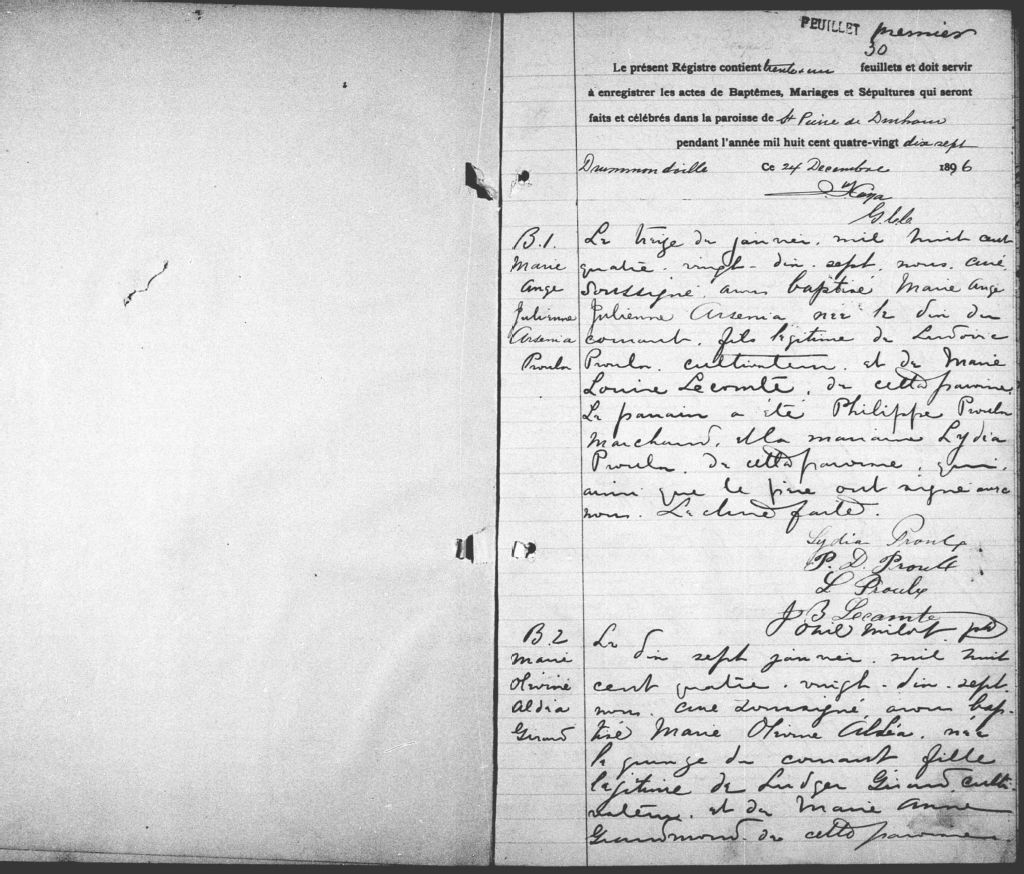 FEUILLET premier
30
Le présent Régistre contient trente un feuillets et doit servir
à enregistrer les actes de Baptêmes, Mariages et Sépultures qui seront
faits et célébrés dans la paroisse de St Pierre de Durham
pendant l'année mil huit cent quatre-vingt dix sept
Drummondville Ce 24 Decembre 1896
B.1.
Marie
Ange
Julienne
Arsenia
Proulx
Le treize de janvier, mil huit cent
quatre-vingt-dix-sept, nous, curé
soussigné, avons baptisé Marie Ange
Julienne Arsenia née le dix du
courant, fils légitime de Ludovic
Proulx, cultivateur, et de Marie
Louise Lecomte, de cette paroisse.
Le parrain a été Philippe Proulx
Marchand, et la marraine Lydia
Proulx, de cette paroisse, qui,
ainsi que le père ont signé avec
nous. Lecture faite.
Lydia Proulx
P. D. Proulx
L Proulx
J B Lecomte
Ovil Milot, ptr
B.2
Marie
Olivine
Aldia
Girard
Le dix sept janvier, mil huit
cent quatre-vingt-dix-sept,
nous, curé soussigné avons bap-
tisé Marie Olivine Aldéa, née
le quinze du courant fille
légitime de Ludger Girard, culti-
vateur, et de Marie Anne
Grandmond de cette paroisse.